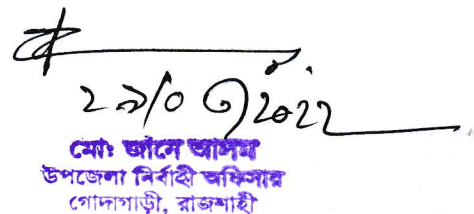 ২৯/০৩/২০২২
মোঃ জানে আলম
উপজেলা নির্বাহী অফিসার
গোদাগাড়ী, রাজশাহী